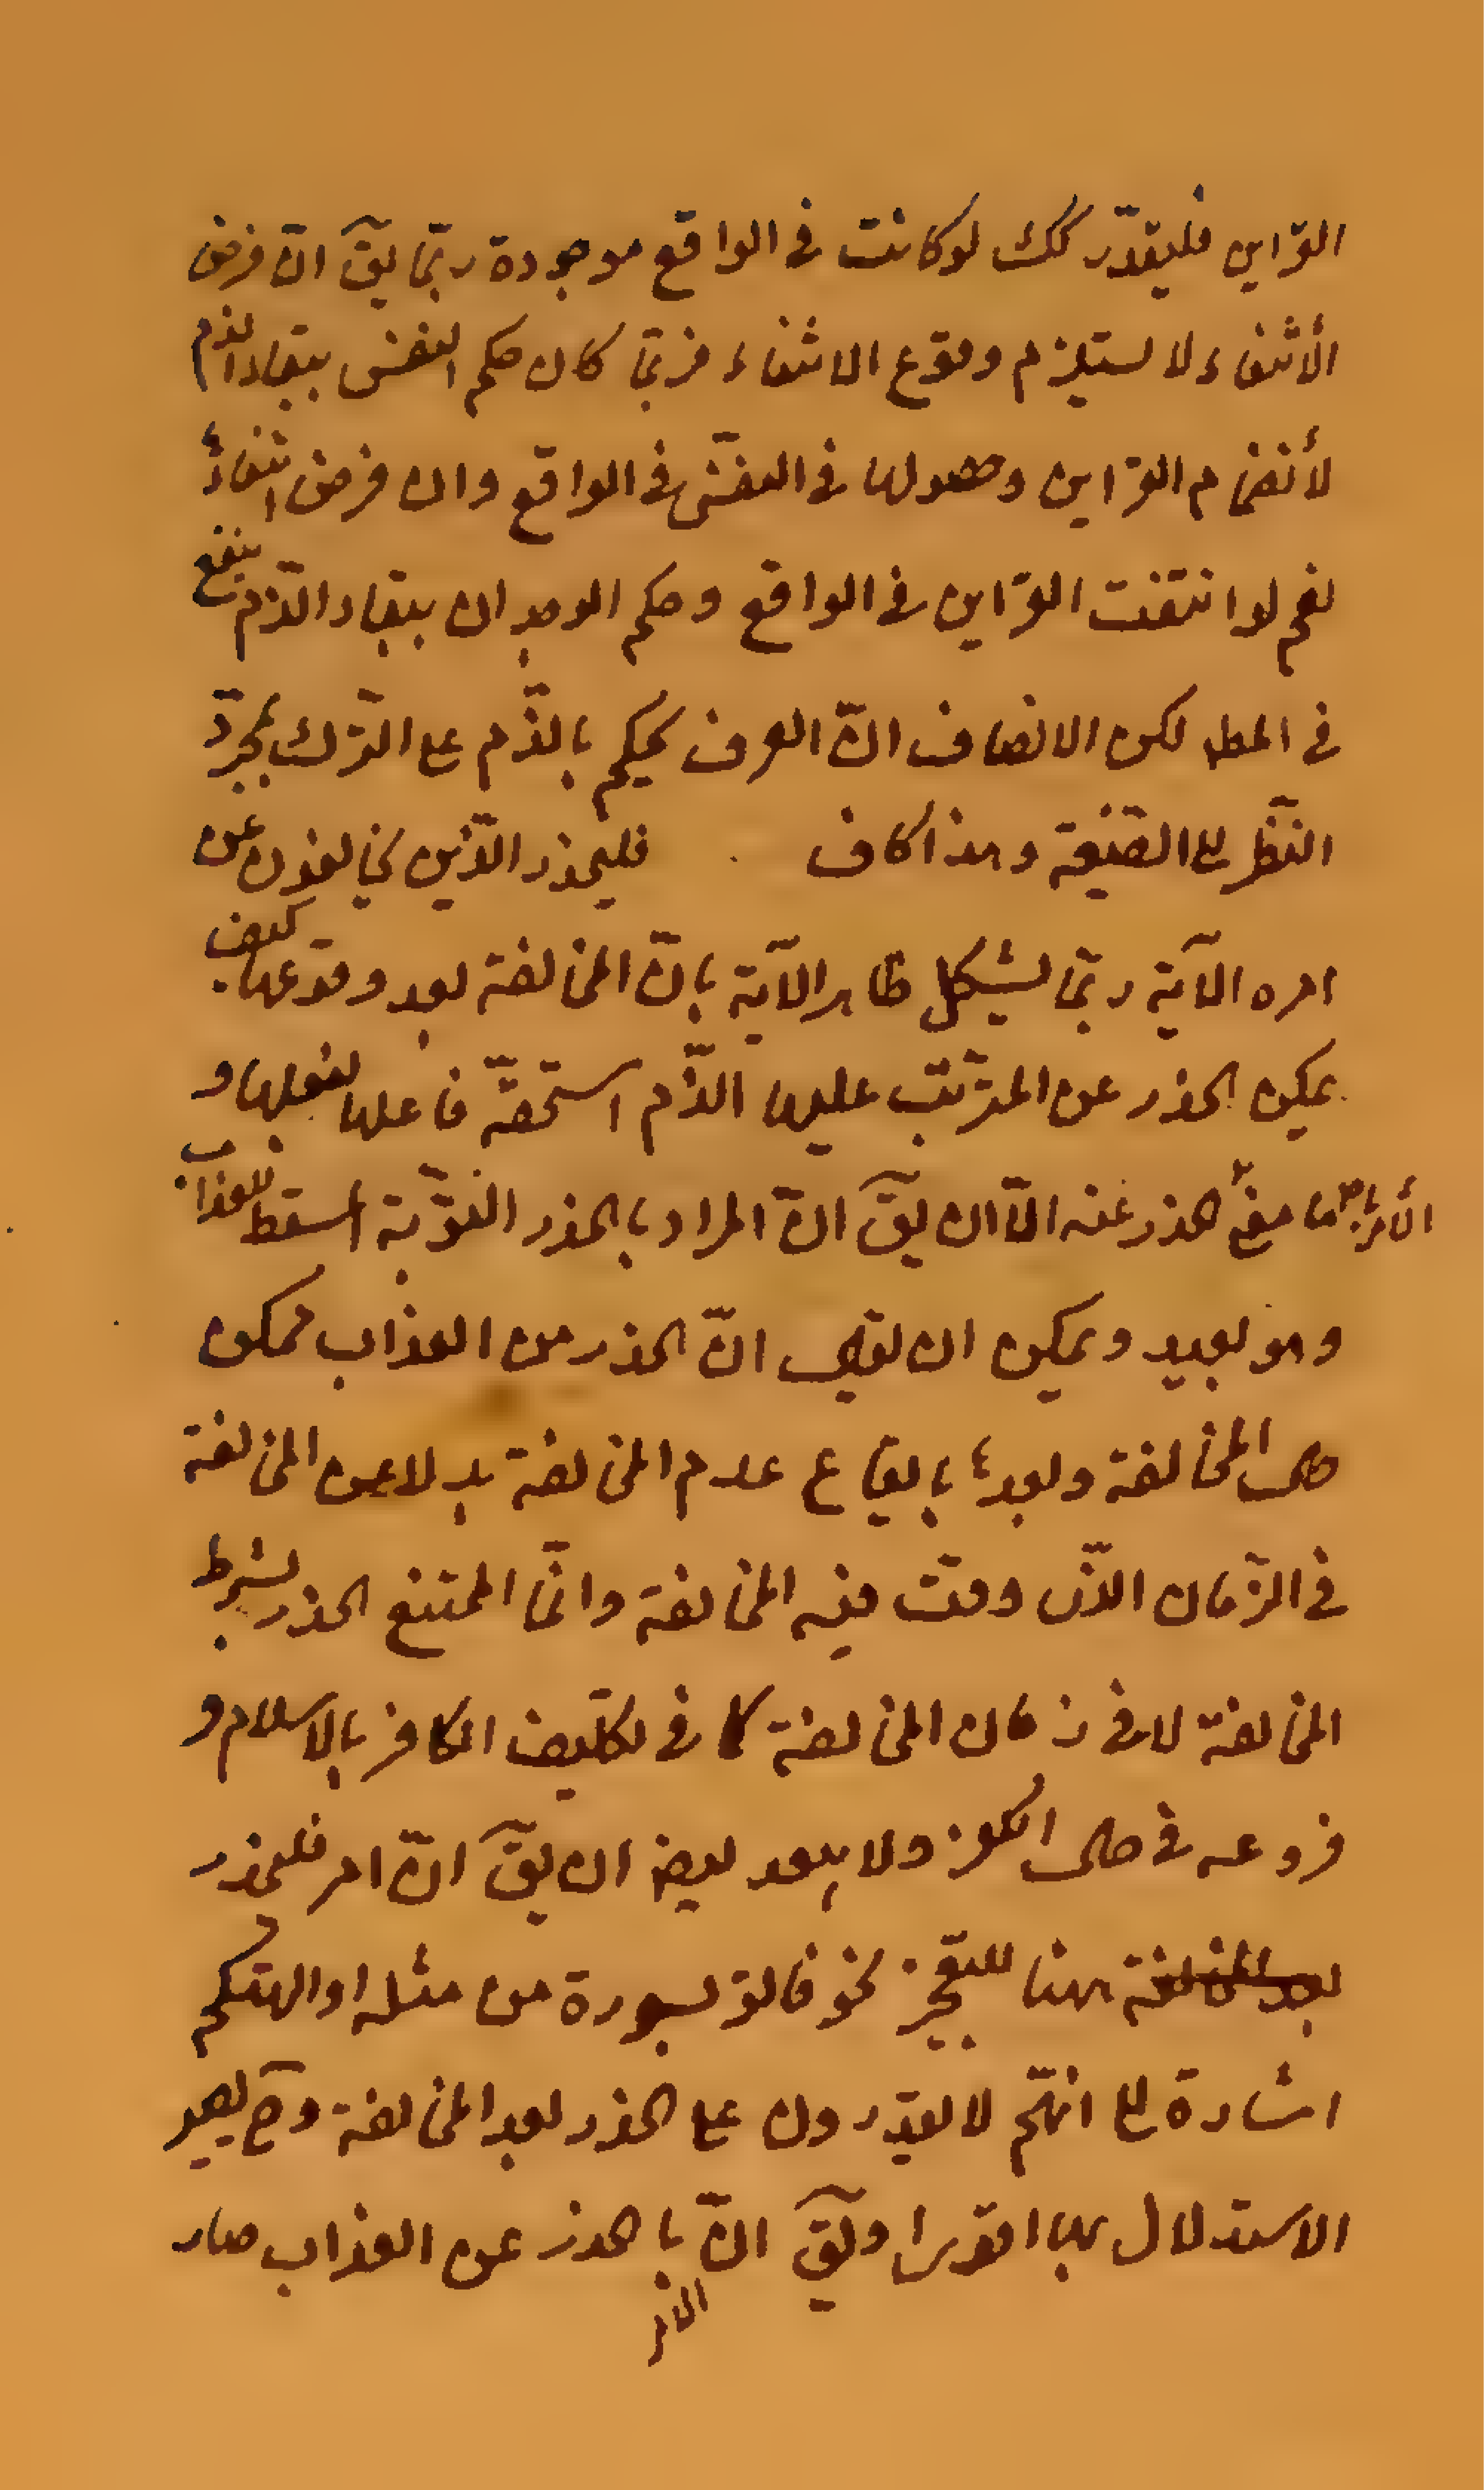 القراين فليقدّر كك لو كانت فى الواقع موجودة ربّما يقٓ انّ فرض
الأنتفاء لا يستلزم وقوع الانتفاء فربّما كان حكم النفس ببقاء الذم
لأنضمام القراين وحصولها فى النفس فى الواقع وان فرض انتفاؤ
نعم لو انتفت القراين فى الواقع وحكم الوجدان ببقاء الذّم ينفع
فى المط لكن الانصاف انّ العرف يحكم بالذّم على التّرك بمجرّد
النّظر الى الصّيغة وهذا كاف فليحذر الّذين يخالفون عن
امره الآية ربّما يشكل ظاهر الآية بانّ المخالفة بعد وقوعها كيف
يمكن الحذر عن المترتّب عليها الذّم استحقّه فاعلها بفعلها و
الأمر بالحذر عنه الّا ان يقٓ انّ المراد بالحذر التّوبة المسقط للعذاب
وهو بعيد ويمكن ان يقال انّ الحذر من العذاب ممكن
حال المخالفة وبعدها بايقاع عدم المخالفة بدلا عن المخالفة
فى الزّمان الّذى وقت فيه المخالفة وانّما الممتنع الحذر بشرط
المخالفة لا فى زمان المخالفة كما فى تكليف الكافر بالاسلام و
فروعه فى حال الكفر ولا يبعد ايضا ان يقٓ انّ امر فليحذر
بعد المخالفة هنا للتعجيز نحو فاتو بسورة من مثله او التهكم
اشارة الى انّكم لا تقدرون على الحذر بعد المخالفة وح يصير
الاستدلال بها اقوى او يقٓ انّ الامر بالحذر عن العذاب صار